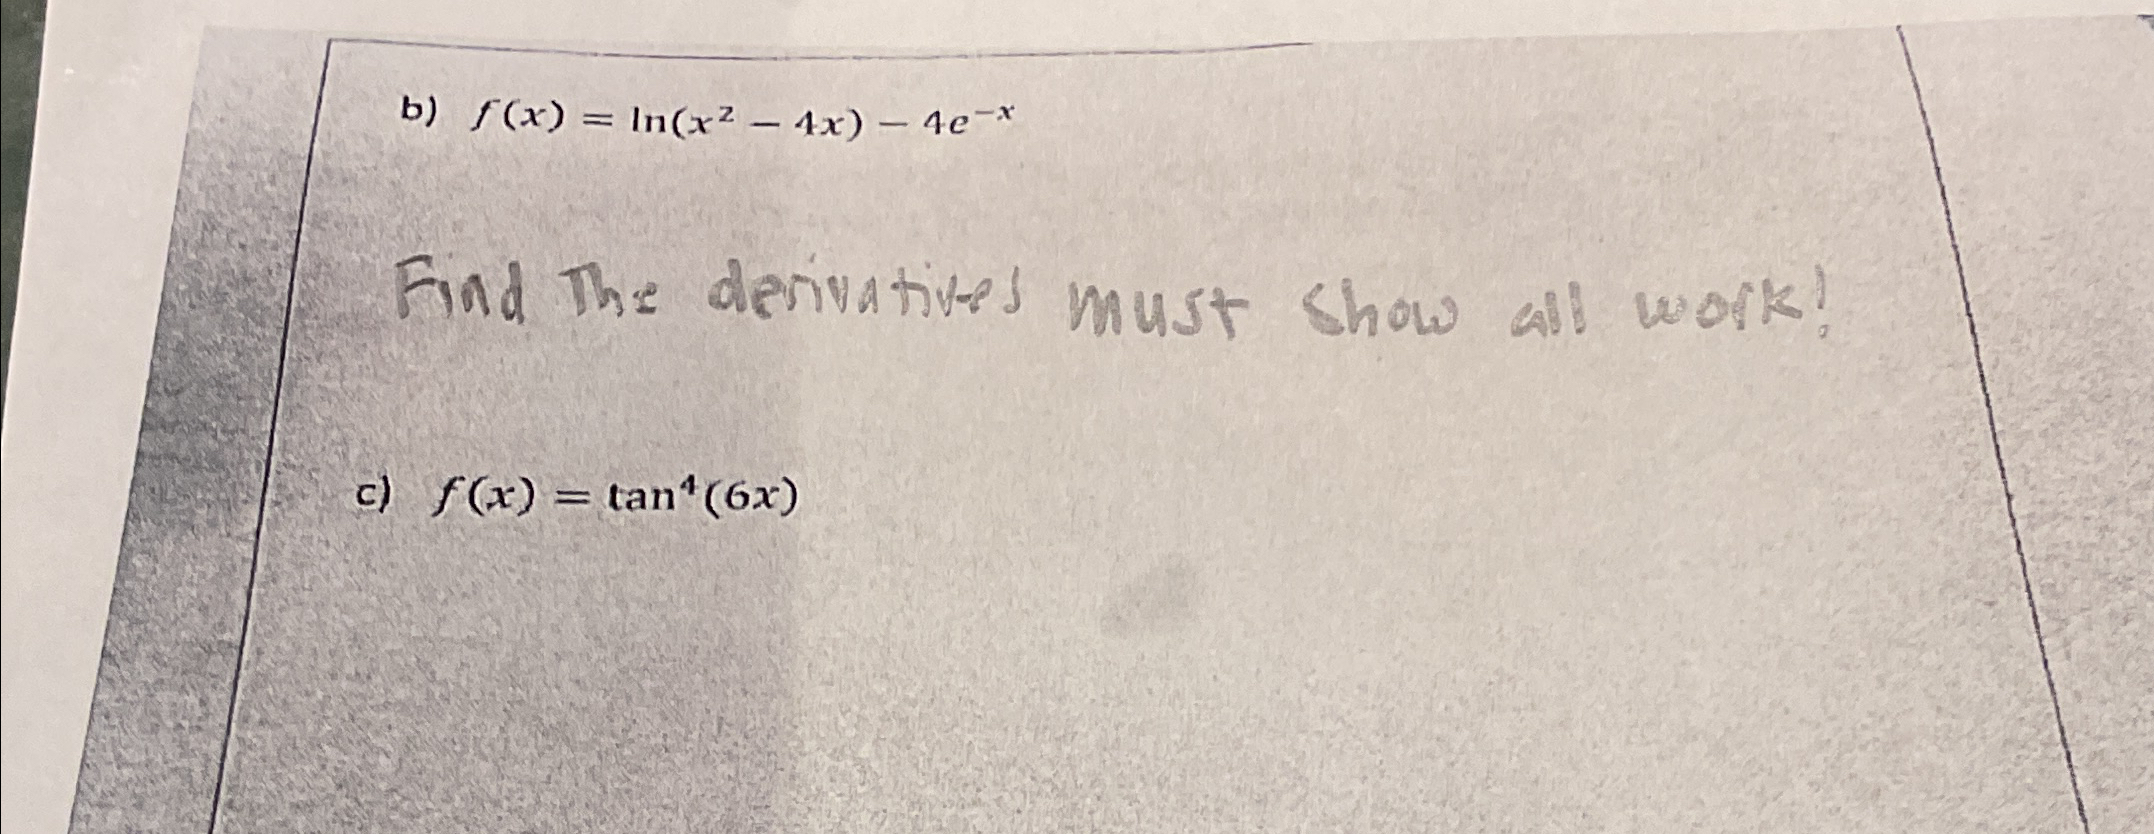 b) f(x) = ln(x² − 4x) − 4e⁻ˣ
Find The derivatives must show all work!
c) f(x) = tan⁴(6x)